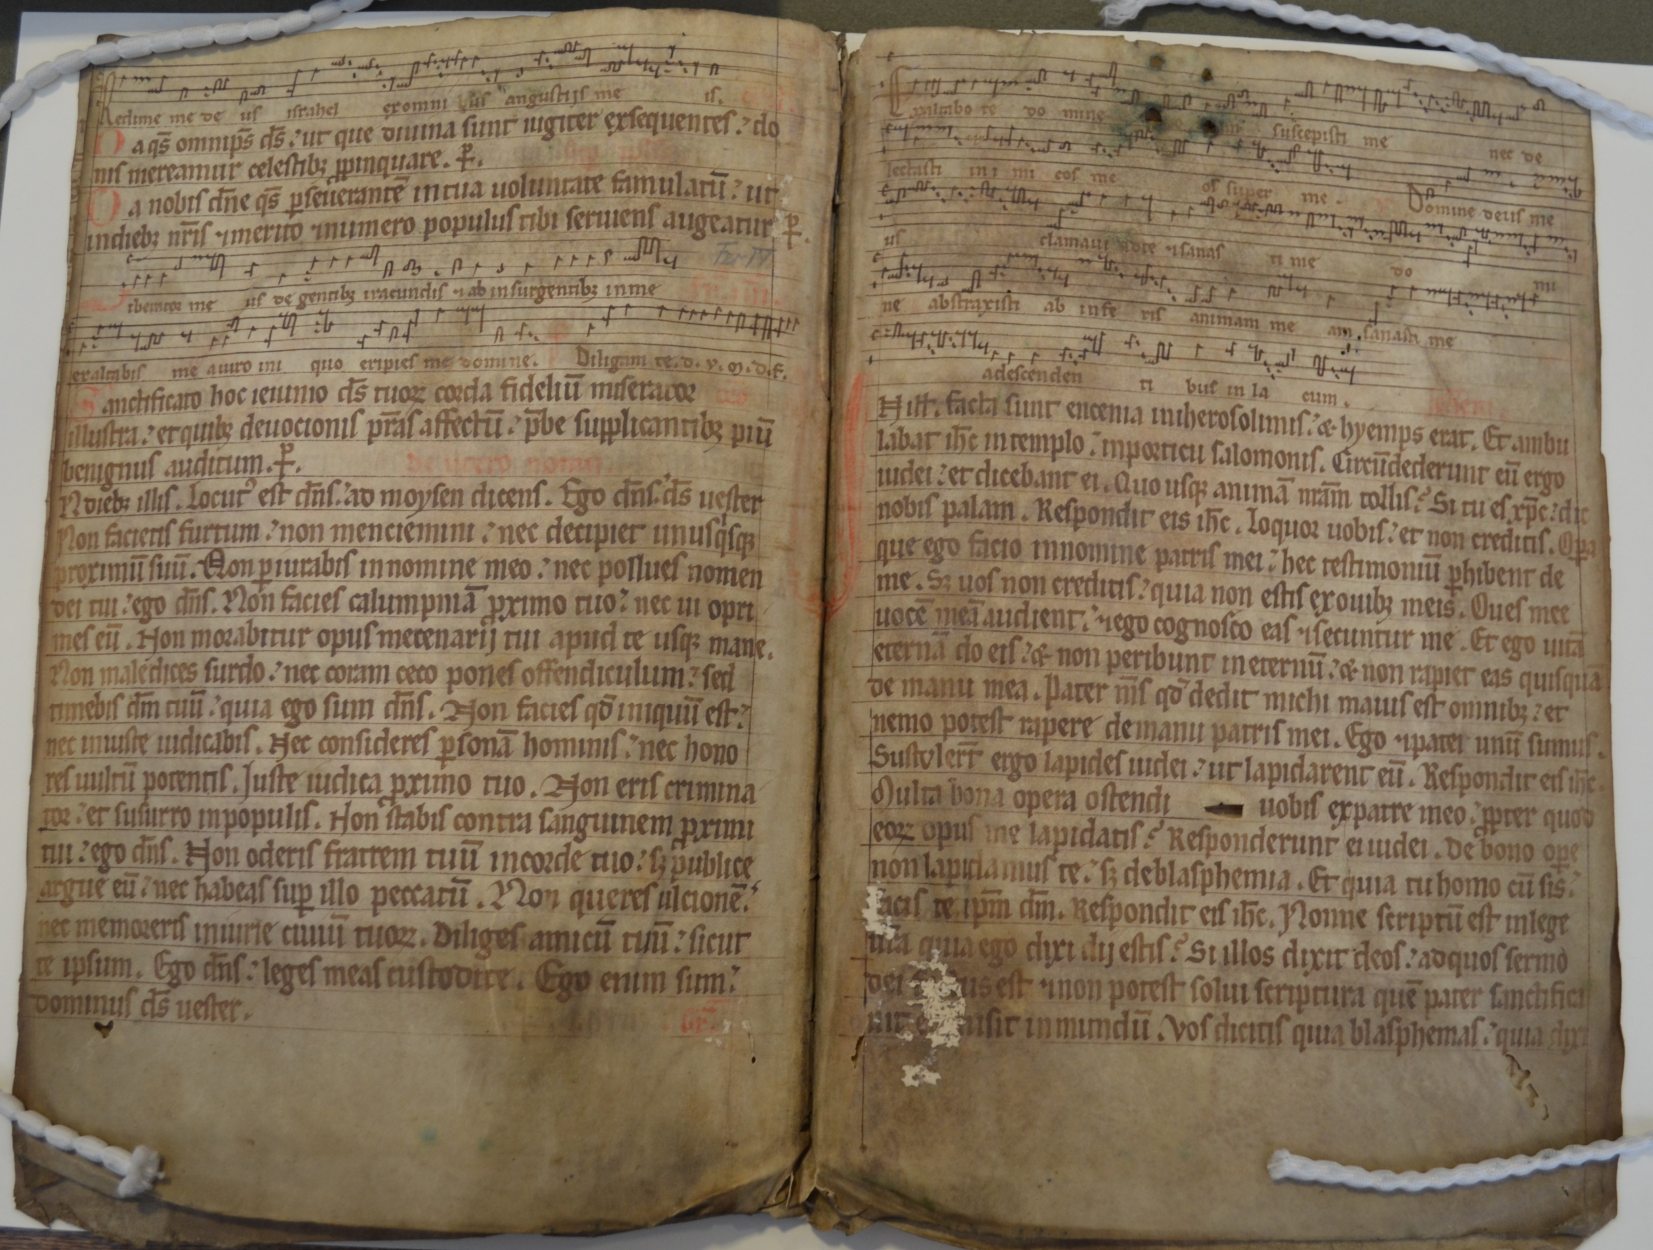 Redime me de us israhel exomni us angustijs me is.
Da qs̄ omnip̄s d̄s ut que diuina sunt iugiter exsequentes do
nis mereamur celestibꝫ ꝓpinquare. P̄.
Da nobis dn̄e qs̄ ꝑseuerantē in tua uoluntate famulatū ut
indiebꝫ nr̄is ⁊ merito ⁊ numero populus tibi seruiens augeatur P̄.
Fer IV
iberator me us de gentibꝫ iracundis ⁊ ab insurgentibꝫ in me
exaltabis me a uiro ini quo eripies me domine. Diligam te. d.
Sanctificato hoc ieiunio d̄s tuoꝝ corda fideliū miserator
illustra et quibꝫ deuocionis p̄stas affectū p̄be supplicantibꝫ piū
benignus auditum. P̄.
N diebꝫ illis. Locut᷒ est dn̄s ad moysen dicens. Ego dn̄s d̄s uester
Non facietis furtum non menciemini nec decipiet unusq̇sqꝫ
proximū suū. Non ꝑiurabis in nomine meo nec pollues nomen
dei tui ego dn̄s. Non facies calumpniā ꝓximo tuo nec ui opri
mes eū. Non morabitur opus mecenarij tui apud te usqꝫ mane.
Non maledices surdo nec coram ceco pones offendiculum sed
timebis dm̄ tuū quia ego sum dn̄s. Non facies qd̄ iniquū est
nec iniuste iudicabis. Nec consideres ꝑsonā hominis nec hono
res uultū potentis. Iuste iudica ꝓximo tuo. Non eris crimina
tor et susurro in populis. Non stabis contra sanguinem ꝓximi
tui ego dn̄s. Non oderis fratrem tuū in corde tuo sꝫ publice
argue eū nec habeas suꝑ illo peccatū. Non queres ulcionē
nec memoreris iniurie ciuiū tuoꝝ. Diliges amicū tuū sicut
te ipsum. Ego dn̄s leges meas custodite. Ego enim sum
dominus d̄s uester.
Gr̄.
Exaltabo te do mine suscepisti me nec de
lectasti ini mi cos me os super me. Domine deus me
us clamaui ad te ⁊ sanas ti me do mi
ne abstraxisti ab infe ris animam me am. sanasti me
a descenden ti bus in la cum.
N ill. facta sunt encenia in iherosolimis ⁊ hyemps erat. Et ambu
labat ih̄c in templo in porticu salomonis. Circūdederunt eū ergo
iudei et dicebant ei. Quo usqꝫ animā nr̄am tollis Si tu es xp̄c dic
nobis palam. Respondit eis ih̄c. Loquor uobis et non creditis. Opera
que ego facio in nomine patris mei hec testimoniū ꝑhibent de
me. Sꝫ uos non creditis quia non estis ex ouibꝫ meis. Oues mee
uocē meā audient ⁊ ego cognosco eas ⁊ secuntur me. Et ego uitā
eternā do eis ⁊ non peribunt in eternū ⁊ non rapiet eas quisquā
de manu mea. Pater m̄s qd̄ dedit michi maius est omnibꝫ et
nemo potest rapere de manu patris mei. Ego ⁊ pater unū sumus.
Sustulert̄ ergo lapides iudei ut lapidarent eū. Respondit eis ih̄c.
Multa bona opera ostendi uobis ex patre meo ꝓpter quod
eoꝝ opus me lapidatis Responderunt ei iudei. De bono oꝑe
non lapidamus te sꝫ de blasphemia. Et quia tu homo cū sis
facis te ip̄m dm̄. Respondit eis ih̄c. Nonne scriptū est in lege
ur̄a quia ego dixi dij estis Si illos dixit deos ad quos sermo
dei est ⁊ non potest solui scriptura quē pater sanctifica
uit misit in mundū. Vos dicitis quia blasphemas quia dixi